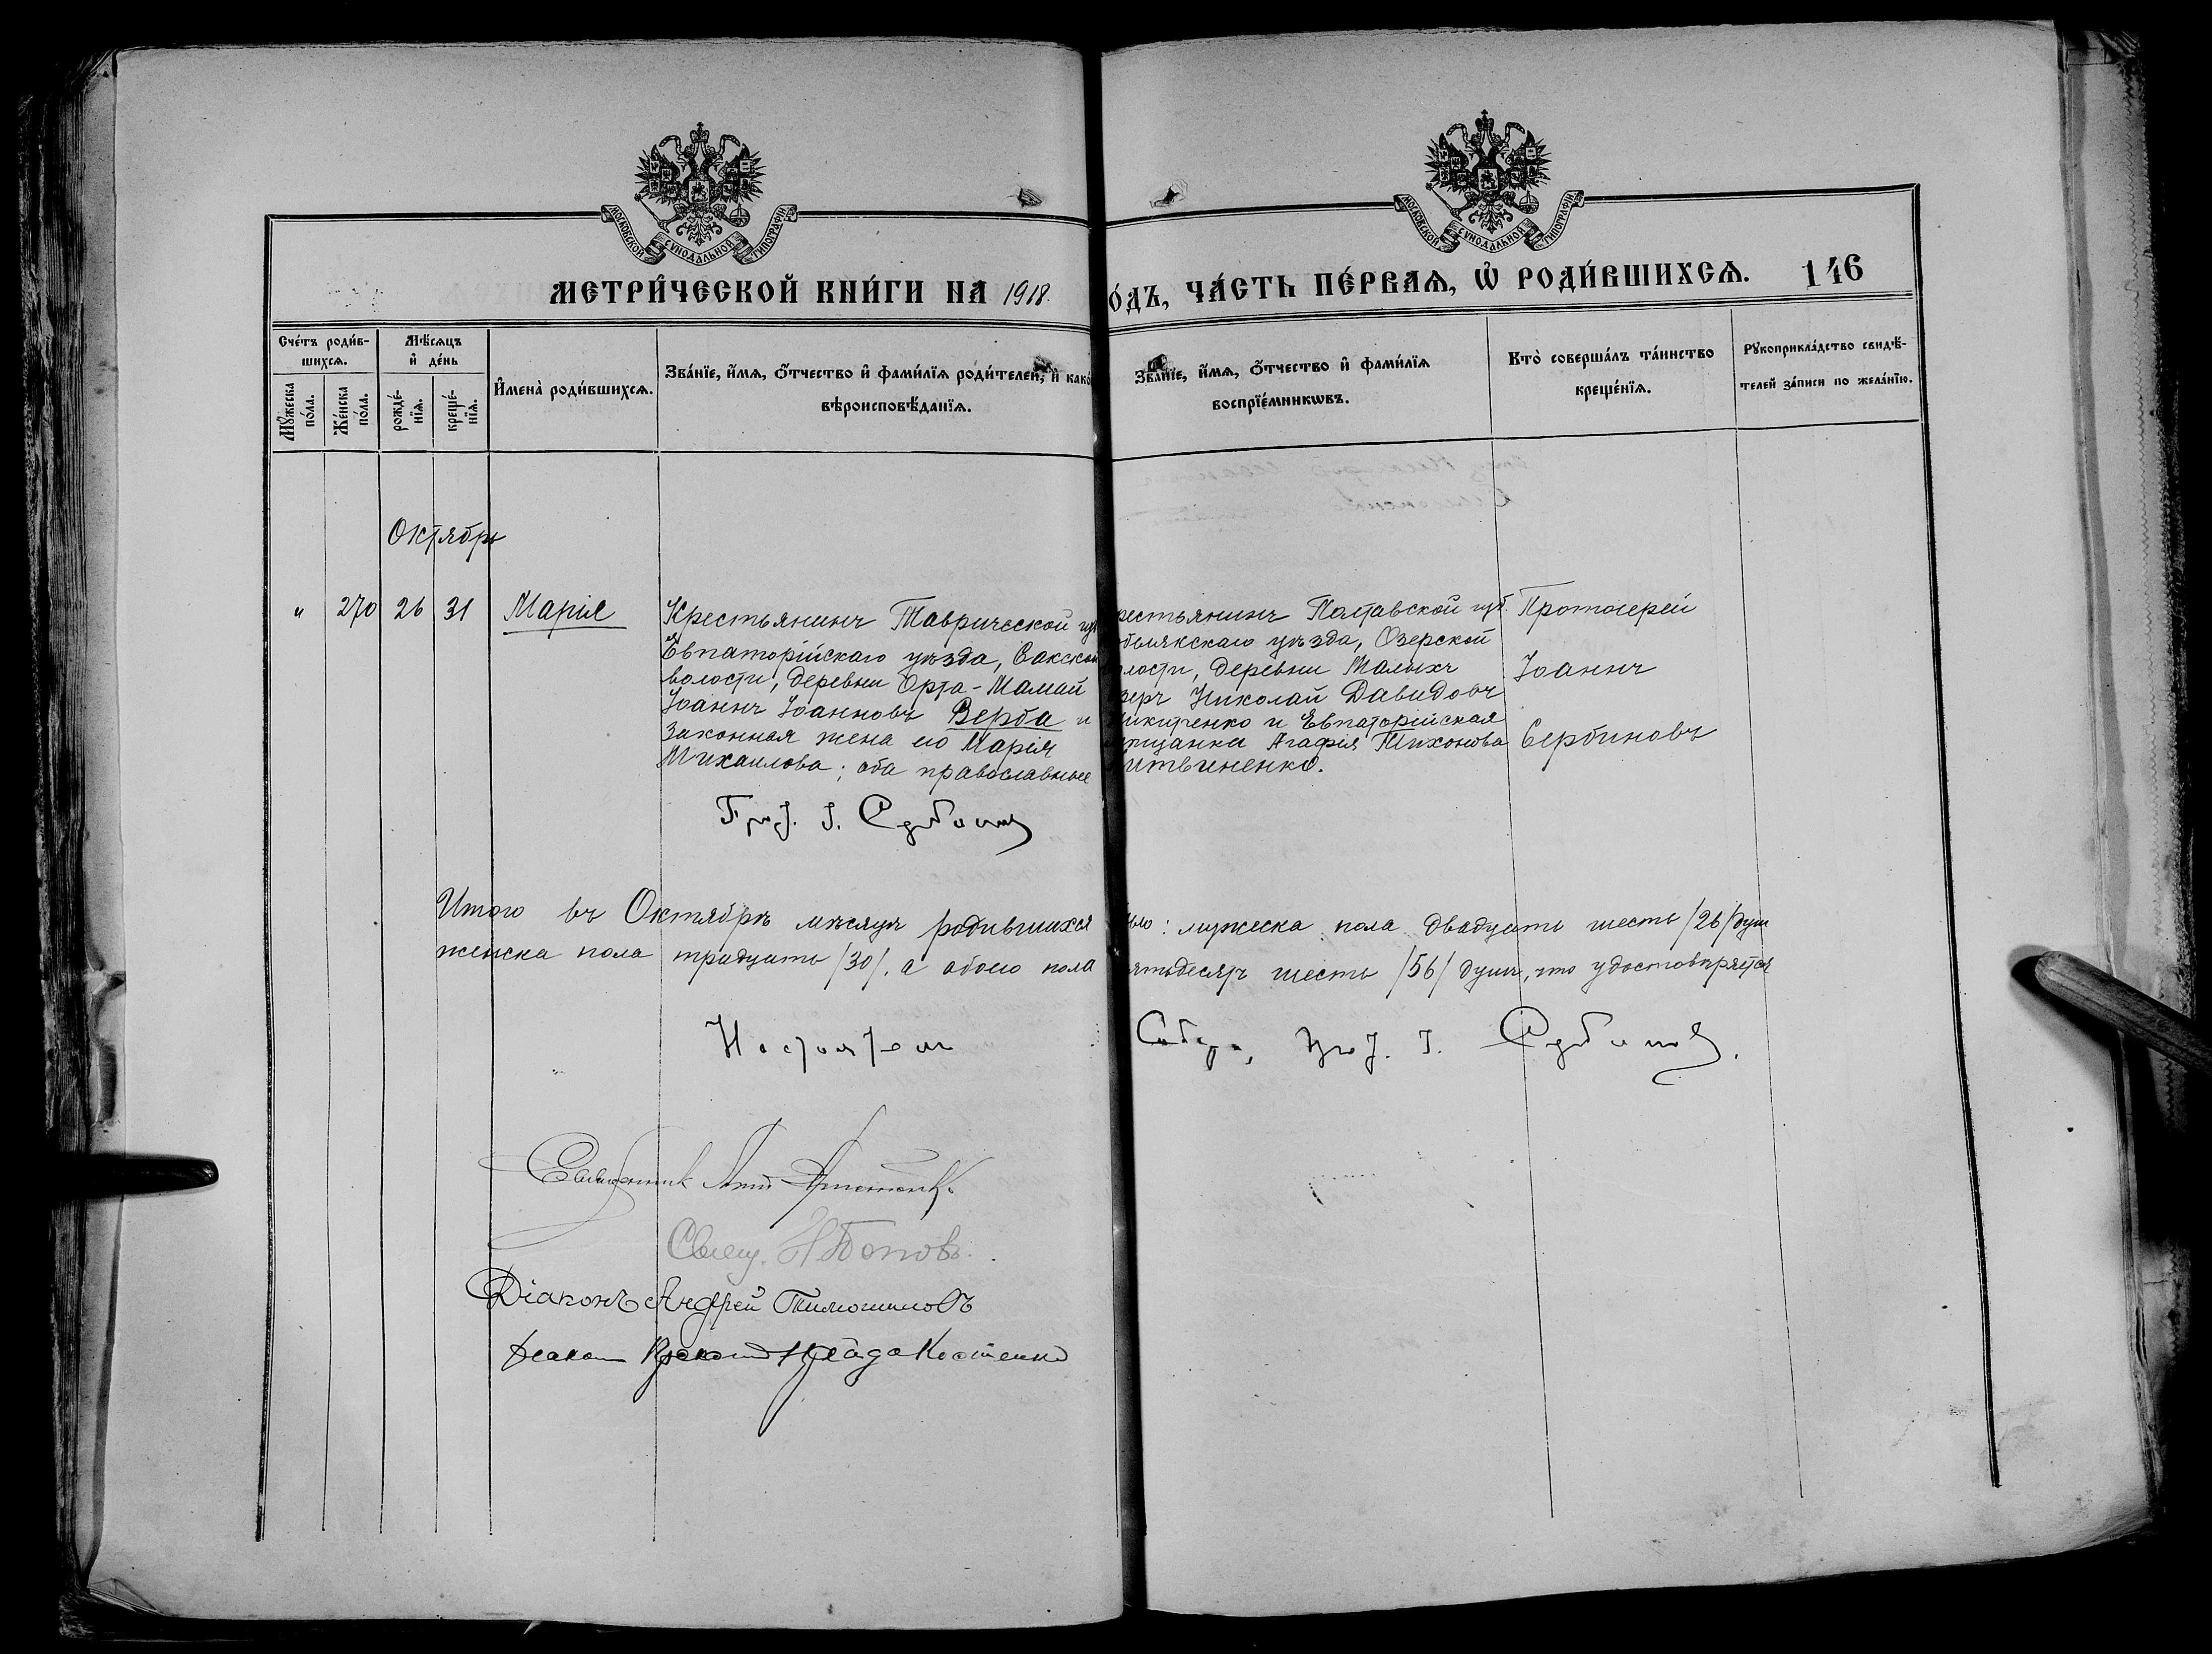 МОСКОВСКОЙ СѴНОДАЛЬНОЙ ТИПОГРАФІИ
МОСКОВСКОЙ СѴНОДАЛЬНОЙ ТИПОГРАФІИ
МЕТРИ́ЧЕСКОЙ КНИ́ГИ НА 1918
о́дъ, ЧА́СТЬ ПЕ́РВАѦ, Ѡ҆ РОДИ́ВШИХСѦ. 146
Сче́тъ роди́в-
шихсѧ.
Мꙋ́жеска
по́ла.
Же́нска
по́ла.
Мѣ́сѧцъ
и҆ де́нь
рожде́-
нїѧ.
креще́-
нїѧ.
И҆мена̀ роди́вшихсѧ.
Зва́нїе, и҆́мѧ, ѻ҆́тчество и҆ фами́лїѧ роди́телей, и҆ како́
вѣроисповѣ́данїѧ.
Зва́нїе, и҆́мѧ, ѻ҆́тчество и҆ фами́лїѧ
воспрїе́мникѡвъ.
Кто̀ соверша́лъ та́инство
креще́нїѧ.
Рꙋкоприкла́дство свидѣ́-
телей за́писи по жела́нїю.
Октябрь
" 270 26 31 Марія
Крестьянинъ Таврической гу
Евпаторійскаго уѣзда, Сакской
волости, деревни Орта-Мамай
Іоаннъ Іоанновъ Верба и
законная жена его Марія
Михаилова; оба православные
Прот. І. Сербиновъ
рестьянинъ Полтавской губ.
белякскаго уѣзда, Озерской
лости, деревни Малыхъ
зеръ Николай Давидовъ
икитенко и Евпаторійская
ѣщанка Агафія Тихонова
итвиненко.
Протоіерей
Іоаннъ
Сербиновъ
Итого въ Октябрѣ мѣсяцѣ родившихся ыло: мужеска пола двадцать шесть /26/ душ
женска пола тридцать /30/, а обоего пола ятьдесятъ шесть /56/ душъ, что удостовѣряется
Настоятель Собора, Прот. І. Сербиновъ.
Священник
Свящ. Н Попов.
Діаконъ Андрей Тимошиновъ
Діакон Костенко